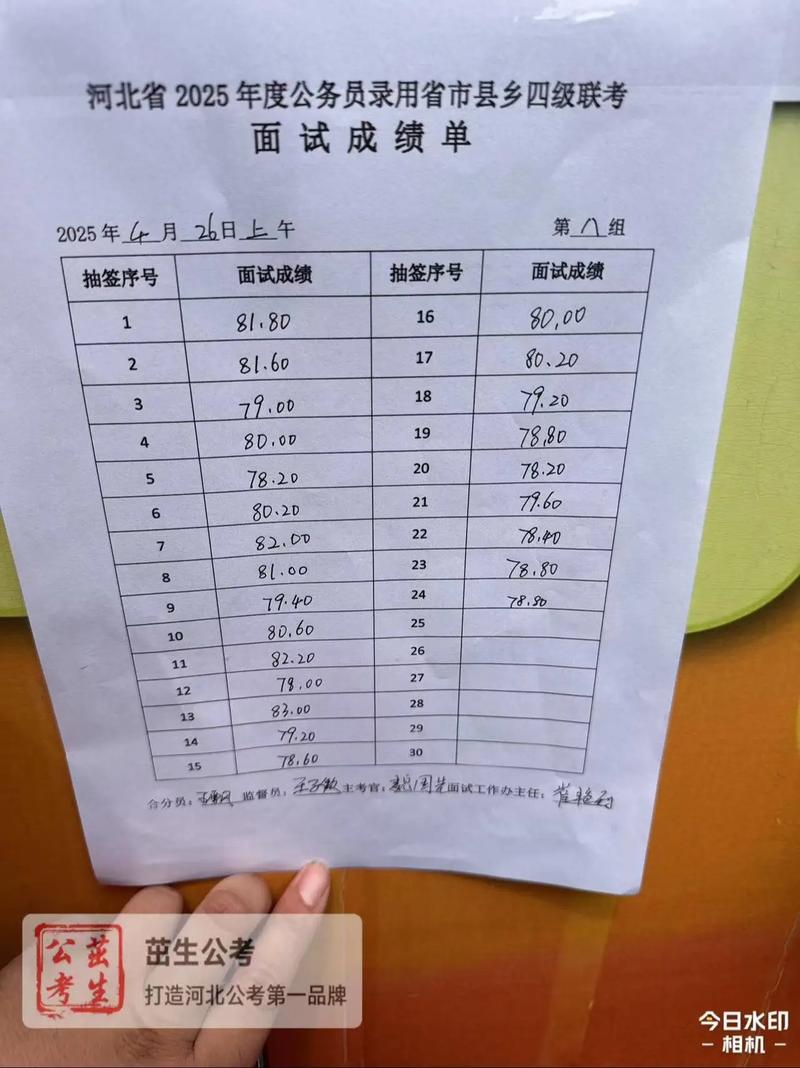 河北省 2025 年度公务员录用省市县乡四级联考
面试成绩单
2025 年 4 月 26 日 上 午 第 八 组
抽签序号 面试成绩 抽签序号 面试成绩
1 81.80 16 80.00
2 81.60 17 80.20
3 79.00 18 79.20
4 80.00 19 78.80
5 78.20 20 78.20
6 80.20 21 79.60
7 82.00 22 78.40
8 81.00 23 78.80
9 79.40 24 78.80
10 80.60 25
11 82.20 26
12 78.00 27
13 83.00 28
14 79.20 29
15 78.60 30
合分员: 监督员: 主考官: 面试工作办主任:
公考 茁生
茁生公考
打造河北公考第一品牌
今日水印
相机